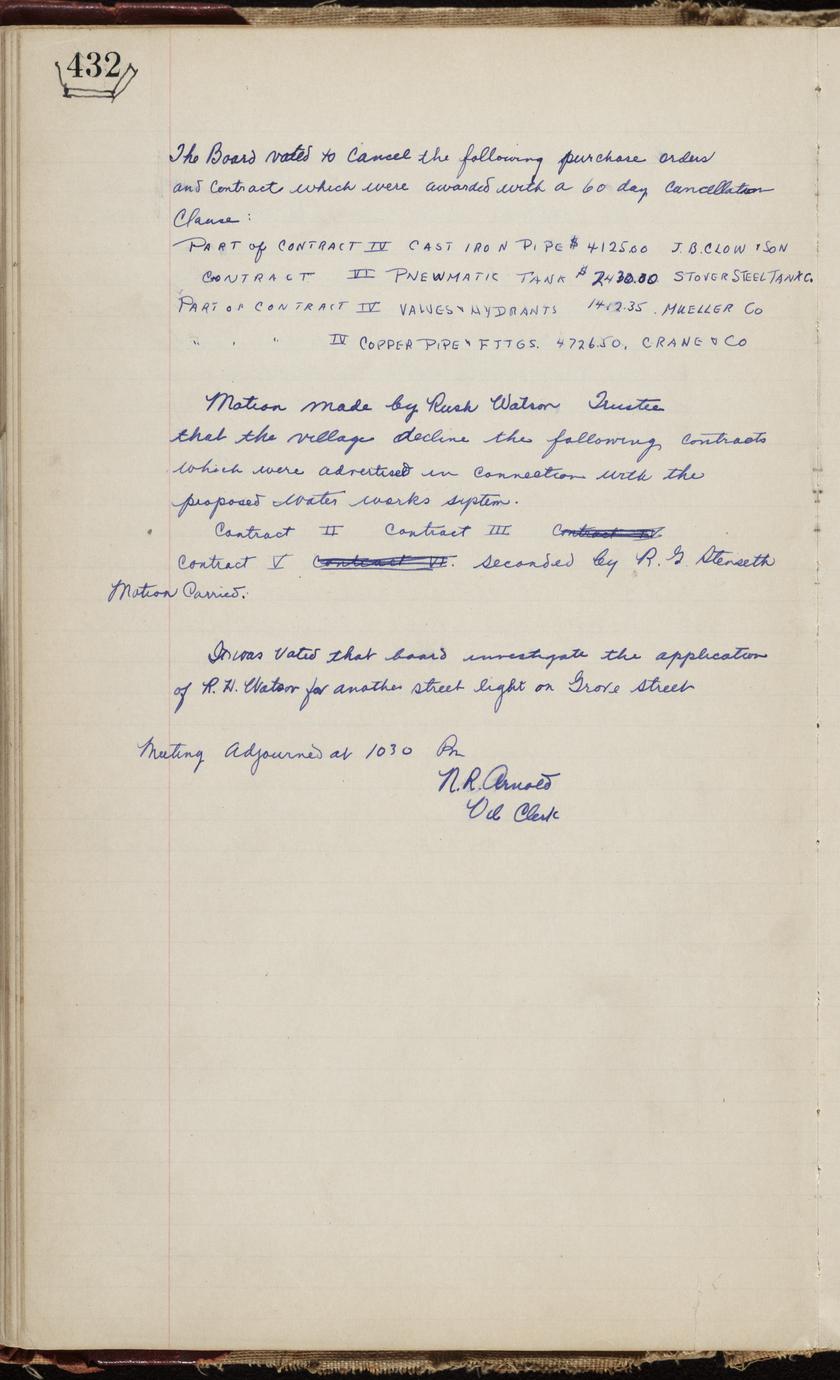 432
The Board voted to cancel the following purchase orders
and contract which were awarded with a 60 day cancellation
Clause:
PART OF CONTRACT IV CAST IRON PIPE $ 412500 J.B.CLOW & SON
CONTRACT VI PNEWMATIC TANK $ 2430.00 STOVER STEEL TANK C.
PART OF CONTRACT IV VALVES & HYDRANTS 1412.35. MUELLER CO
" " " IV COPPER PIPE & FTTGS. 4726.50. CRANE & CO
Motion made by Rush Watson Trustee
that the village decline the following contracts
which were advertised in connection with the
proposed water works system.
Contract II Contract III Contract IV
Contract V Contract VI. seconded by R. G. Stenseth
Motion Carried.
It was voted that board investigate the application
of R. H. Watson for another street light on Grove Street
Meeting Adjourned at 1030 Pm
N.R. Arnold
Vil Clerk